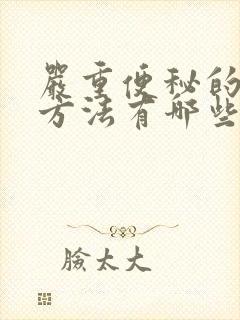 嚴重便秘的
方法有哪些
臉太大